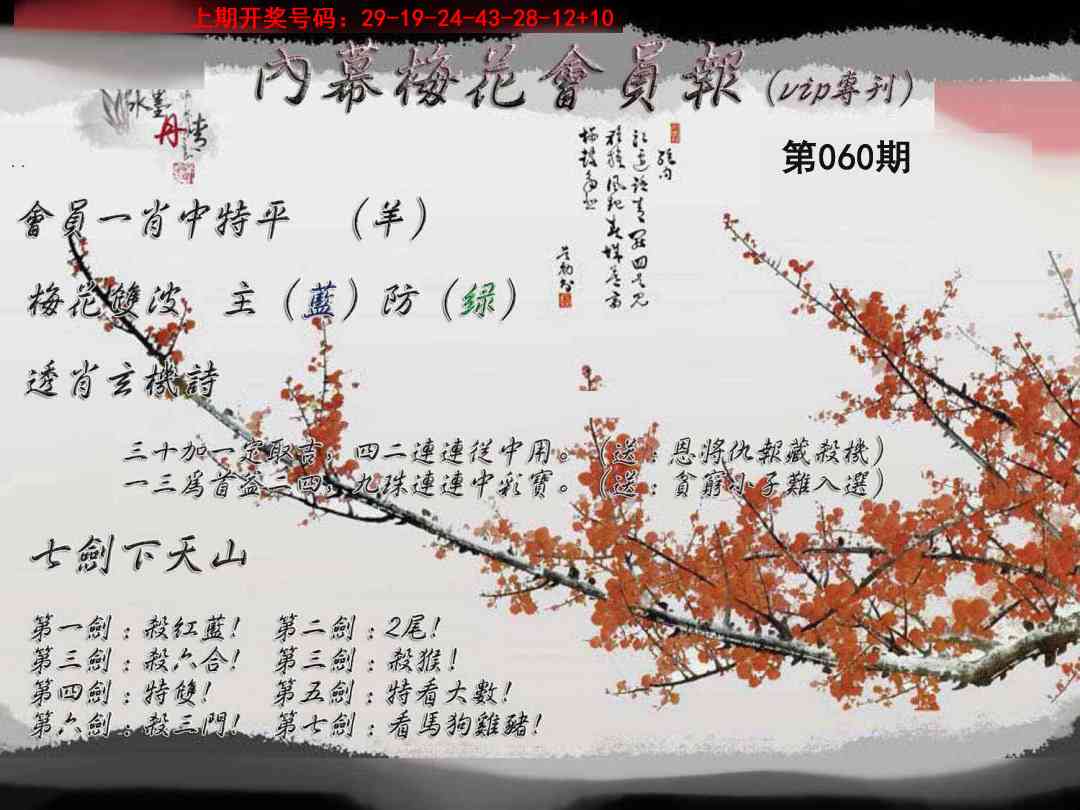 上期开奖号码：29-19-24-43-28-12+10
內幕梅花會員報（vip專刊）
水墨
丹青
第060期
會員一肖中特平　（羊）
梅花雙波　主（藍）防（绿）
透肖玄機詩
三十加一定取吉；四二連連從中用。（送：恩將仇報藏殺機）
一三爲首益三四；九珠連連中彩寶。（送：貧窮小子難入選）
七劍下天山
第一劍：殺紅藍！　第二劍：2尾！
第三劍：殺六合！　第三劍：殺猴！
第四劍：特雙！　第五劍：特看大數！
第六劍：殺三門！　第七劍：看馬狗雞豬！